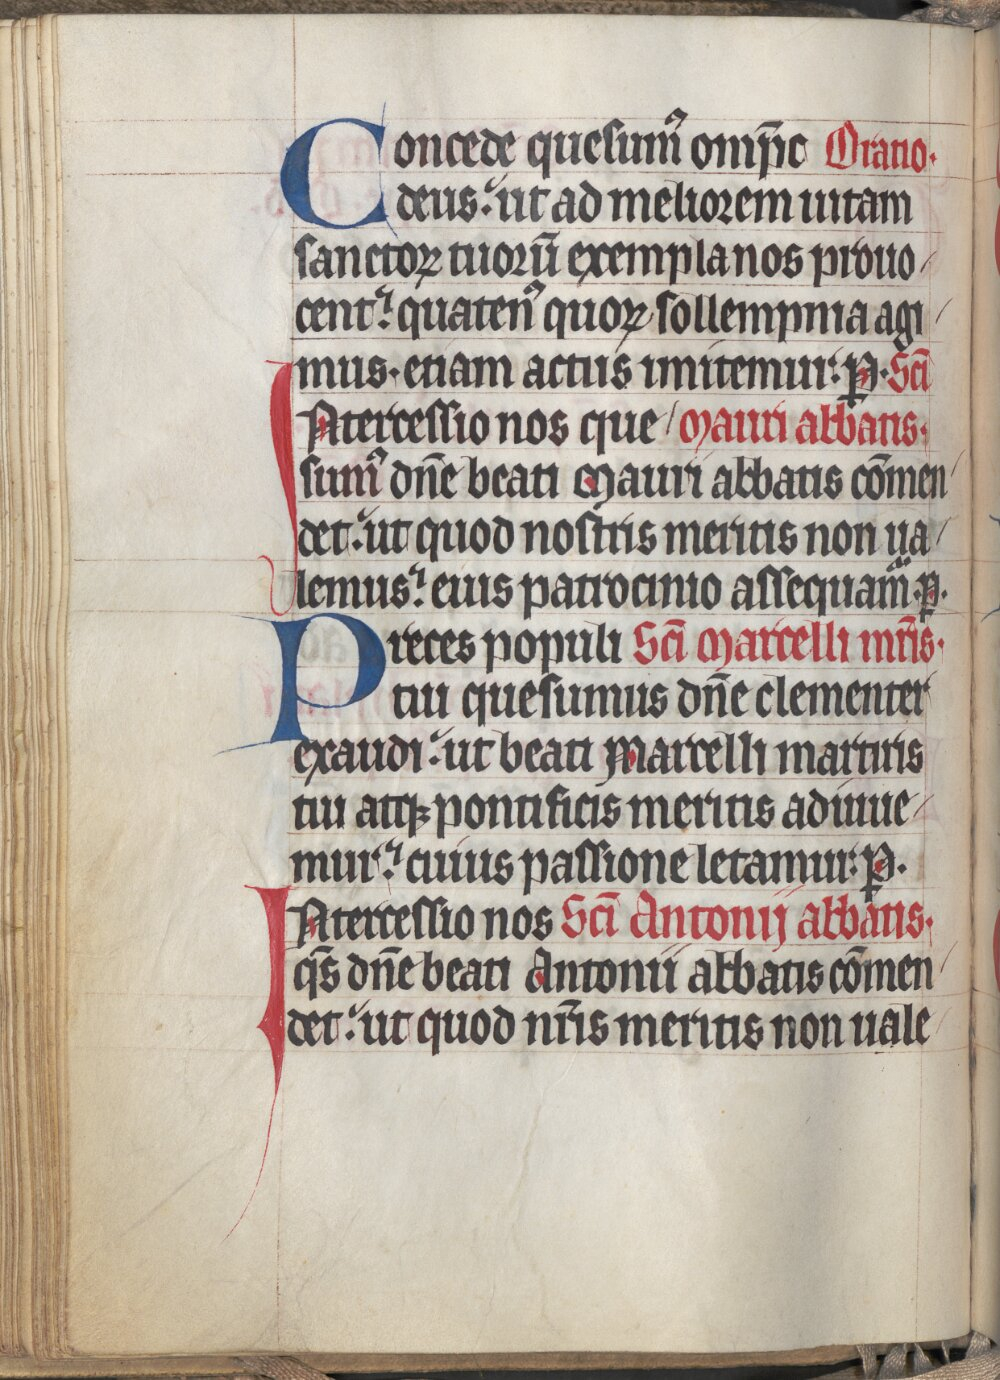 Concede quesumꝰ omp̄c Oratio·
deus: ut ad meliorem uitam
sanctoꝝ tuorū exempla nos prouo
cent: quatenꝰ quoꝝ sollempnia agi
mus· etiam actus imitemur: P· Sc̄i
Intercessio nos que Mauri abbatis·
sumꝰ dn̄e beati Mauri abbatis cōmen
det: ut quod nostris meritis non ua
lemus: eius patrocinio assequam̃· P·
Preces populi Sc̄i Marcelli mr̄is·
tui quesumus dn̄e clementer
exaudi: ut beati Marcelli martiris
tui atqꝫ pontificis meritis adiuue
mur: cuius passione letamur: P·
Intercessio nos Sc̄i Antonij abbatis·
qs̄ dn̄e beati Antonii abbatis cōmen
det: ut quod nr̄is meritis non uale